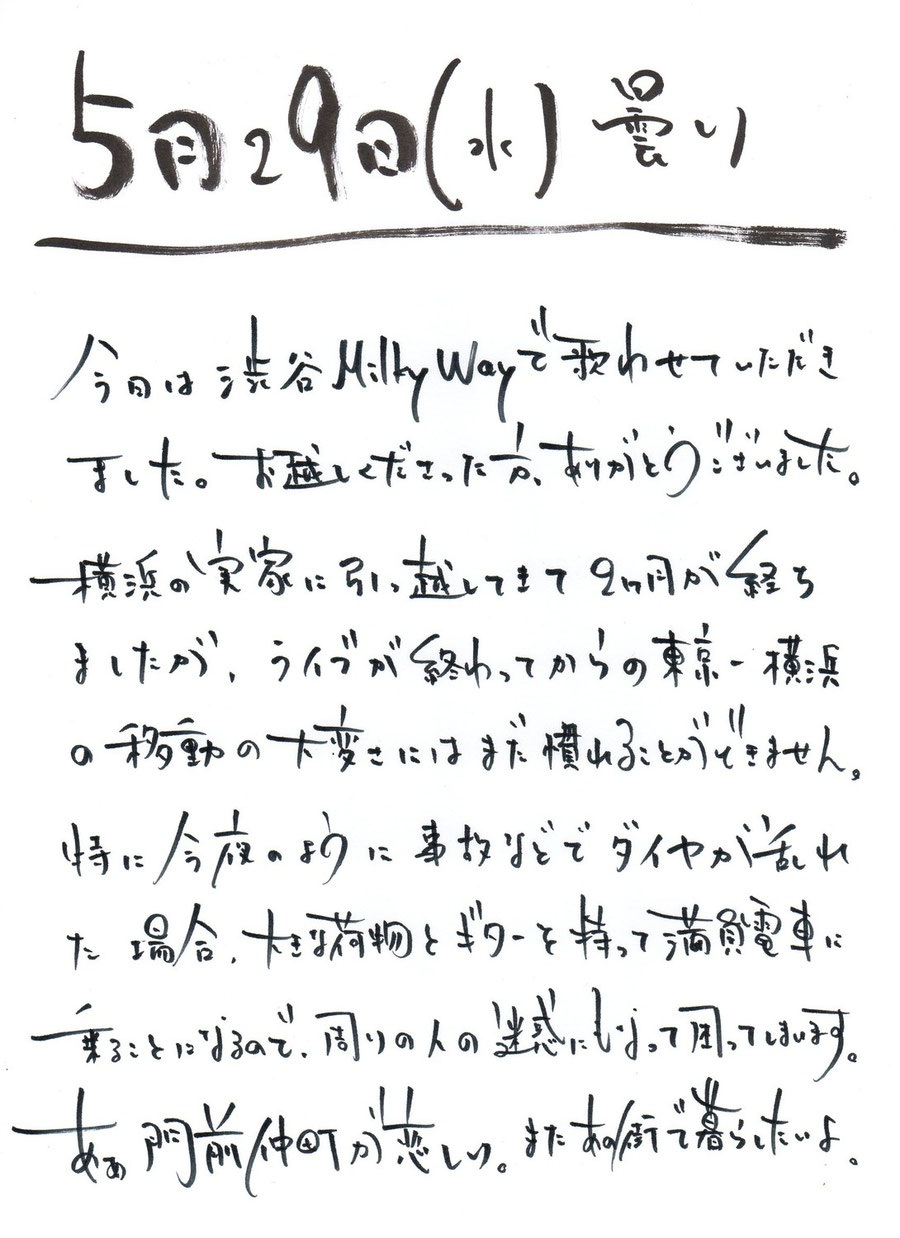 5月29日(水) 曇り
今日は渋谷Milky Wayで歌わせていただき
ました。お越しくださった方、ありがとうございました。
横浜の実家に引っ越してきて2ヶ月が経ち
ましたが、ライブが終わってからの東京-横浜
の移動の大変さにはまだ慣れることができません。
特に今夜のように事故などでダイヤが乱れ
た場合、大きな荷物とギターを持って満員電車に
乗ることになるので、周りの人の迷惑にもなって困ってしまいます。
あぁ門前仲町が恋しい。またあの街で暮らしたいよ。